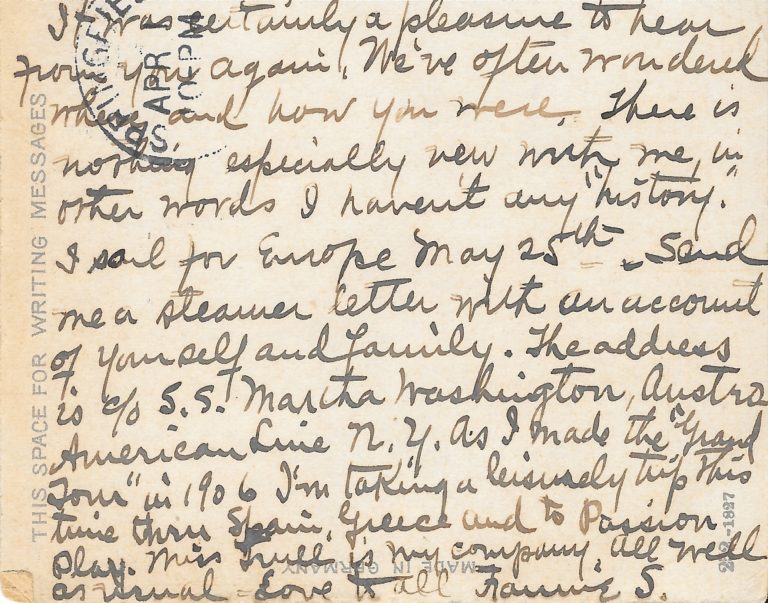 It was certainly a pleasure to hear
from you again. We've often wondered
where and how you were. There is
nothing especially new with me, in
other words I haven't any "history."
I sail for Europe May 25th - Send
me a steamer letter with an account
of yourself and family. The address
is c/o S.S. Martha Washington, Austro
American Line N.Y. As I made the "Grand
Tour" in 1906 I'm taking a leisurely trip this
time thru Spain, Greece and to Passion
Play. Miss Trull is my company. All well
as usual - Love to all Fannie S.
SPRINGFIELD
APR 1
THIS SPACE FOR WRITING MESSAGES
MADE IN GERMANY